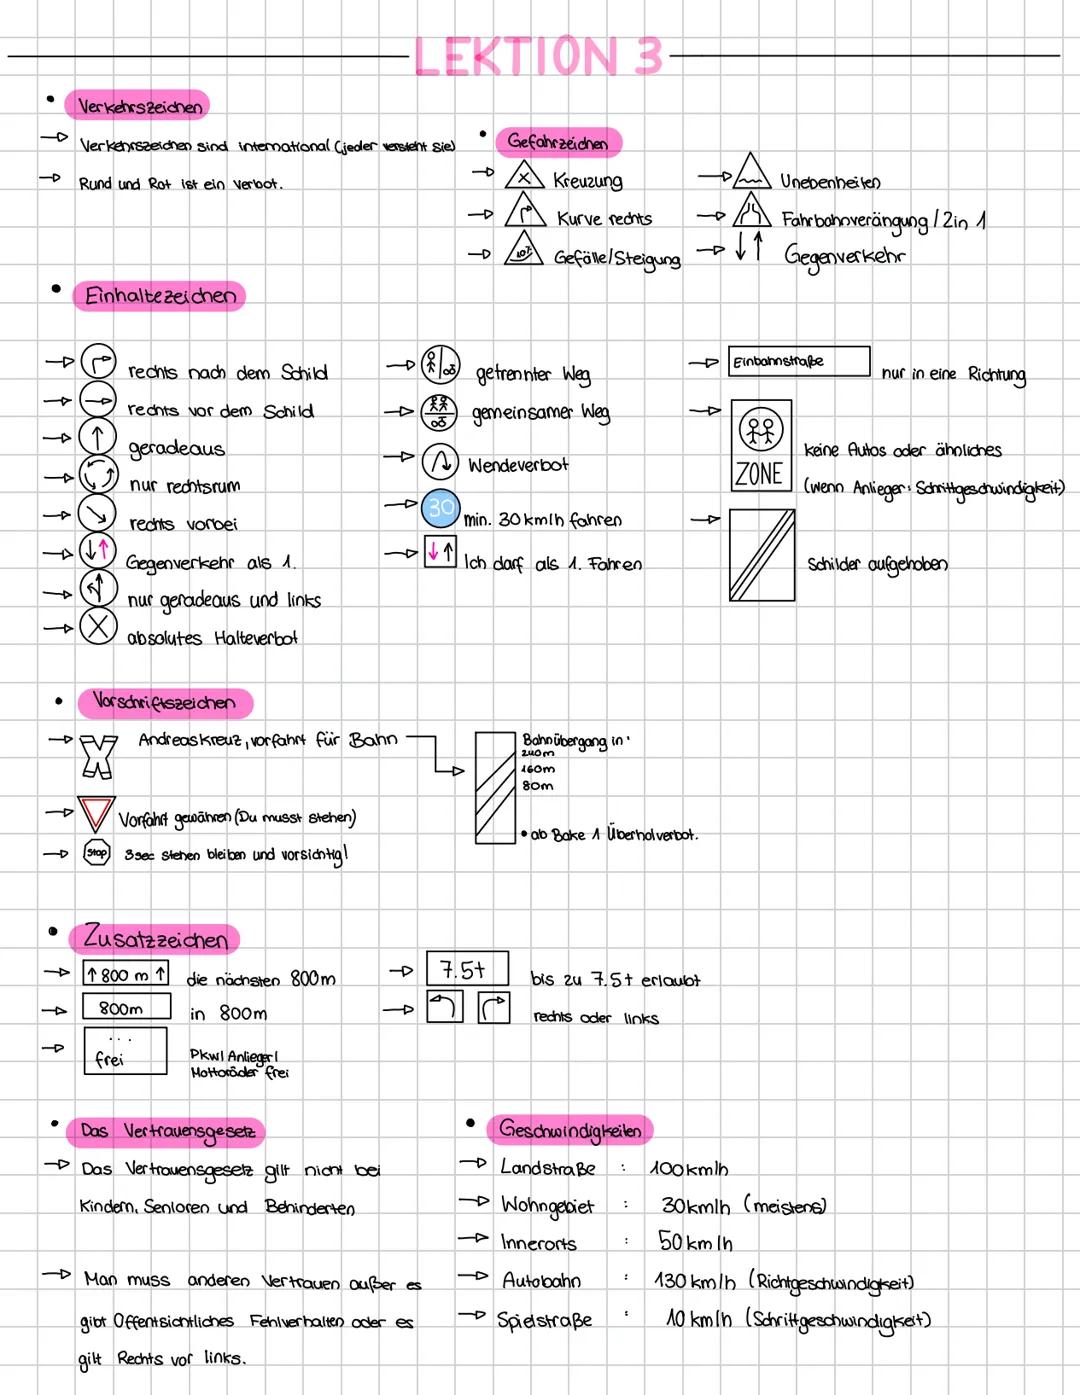 LEKTION 3
Verkehrszeichen
Verkehrszeichen sind international (jeder versteht sie)
Rund und Rot ist ein Verbot.
Gefahrzeichen
Kreuzung
Kurve rechts
10% Gefälle/Steigung
Unebenheiten
Fahrbahnverängung / 2 in 1
Gegenverkehr
Einhaltezeichen
rechts nach dem Schild
rechts vor dem Schild
geradeaus
nur rechtsrum
rechts vorbei
Gegenverkehr als 1.
nur geradeaus und links
absolutes Halteverbot
getrennter Weg
gemeinsamer Weg
Wendeverbot
30 min. 30 km/h fahren
Ich darf als 1. Fahren
Einbahnstraße nur in eine Richtung
ZONE
keine Autos oder ähnliches
(wenn Anlieger: Schrittgeschwindigkeit)
Schilder aufgehoben
Vorschriftszeichen
Andreaskreuz, vorfahrt für Bahn
Vorfahrt gewähren (Du musst stehen)
Stop 3sec stehen bleiben und vorsichtig!
Bahnübergang in:
240m
160m
80m
• ab Bake 1 Überholverbot.
Zusatzzeichen
↑ 800 m ↑ die nächsten 800m
800m in 800m
... frei
Pkw/ Anlieger/
Mottoräder frei
7.5t bis zu 7.5t erlaubt
rechts oder links
Das Vertrauensgesetz
Das Vertrauensgesetz gilt nicht bei
Kindern, Senioren und Behinderten
Man muss anderen Vertrauen außer es
gibt Offentsichtliches Fehlverhalten oder es
gilt Rechts vor links.
Geschwindigkeiten
Landstraße : 100km/h
Wohngebiet : 30km/h (meistens)
Innerorts : 50 km/h
Autobahn : 130 km/h (Richtgeschwindigkeit)
Spielstraße : 10 km/h (Schrittgeschwindigkeit)